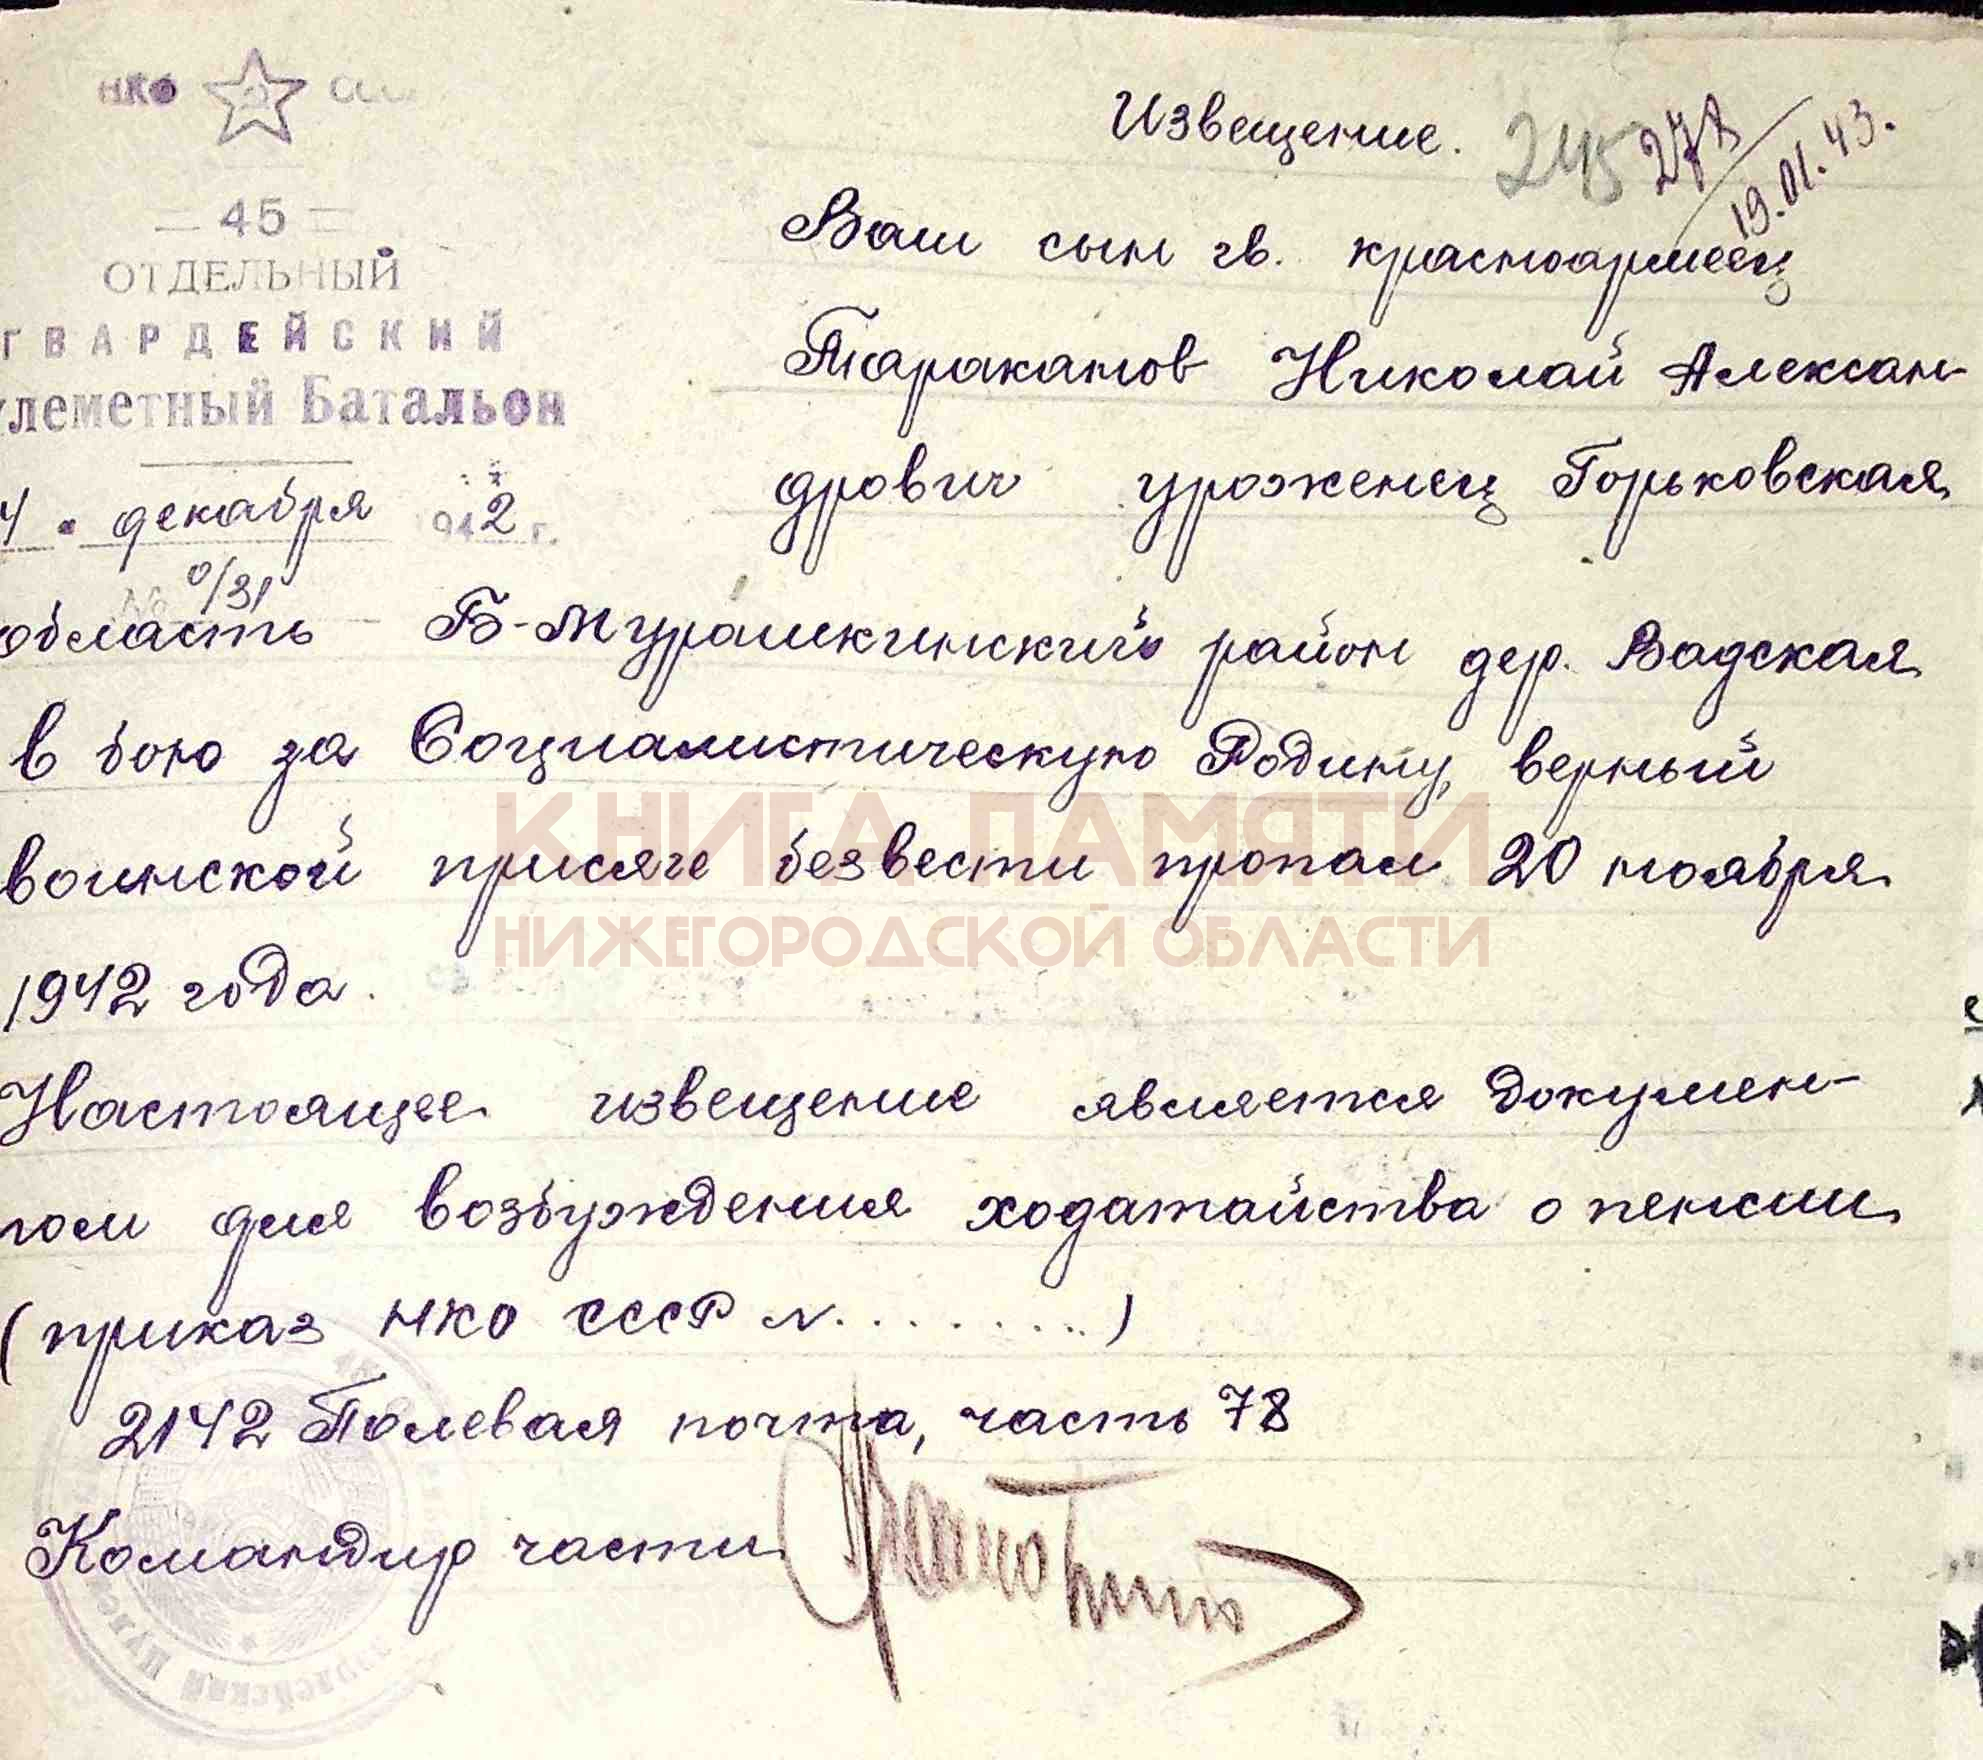 НКО
— 45 —
ОТДЕЛЬНЫЙ
ГВАРДЕЙСКИЙ
улеметный Батальон
4 декабря 1942 г.
№ 0/31
Извещение.
245 278
19.01.43.
Ваш сын гв. красноармеец
Тараканов Николай Алексан-
дрович уроженец Горьковская
область Б-Мурашкинский район дер. Вадская
в бою за Социалистическую Родину, верный
воинской присяге безвести пропал 20 ноября
1942 года.
Настоящее извещение является докумен-
том для возбуждения ходатайства о пенсии
(приказ НКО СССР №.........)
2142 Полевая почта, часть 78
Командир части
КНИГА ПАМЯТИ
НИЖЕГОРОДСКОЙ ОБЛАСТИ